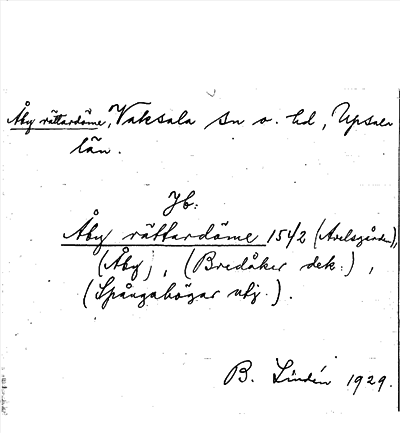 Åby rättardöme, Vaksala sn o. hd, Upsala
län.
Jb:
Åby rättardöme 1542 (Avelsgården),
(Åby), (Bredåker dek.),
(Spångahögar utj.).
B. Lindén 1929.